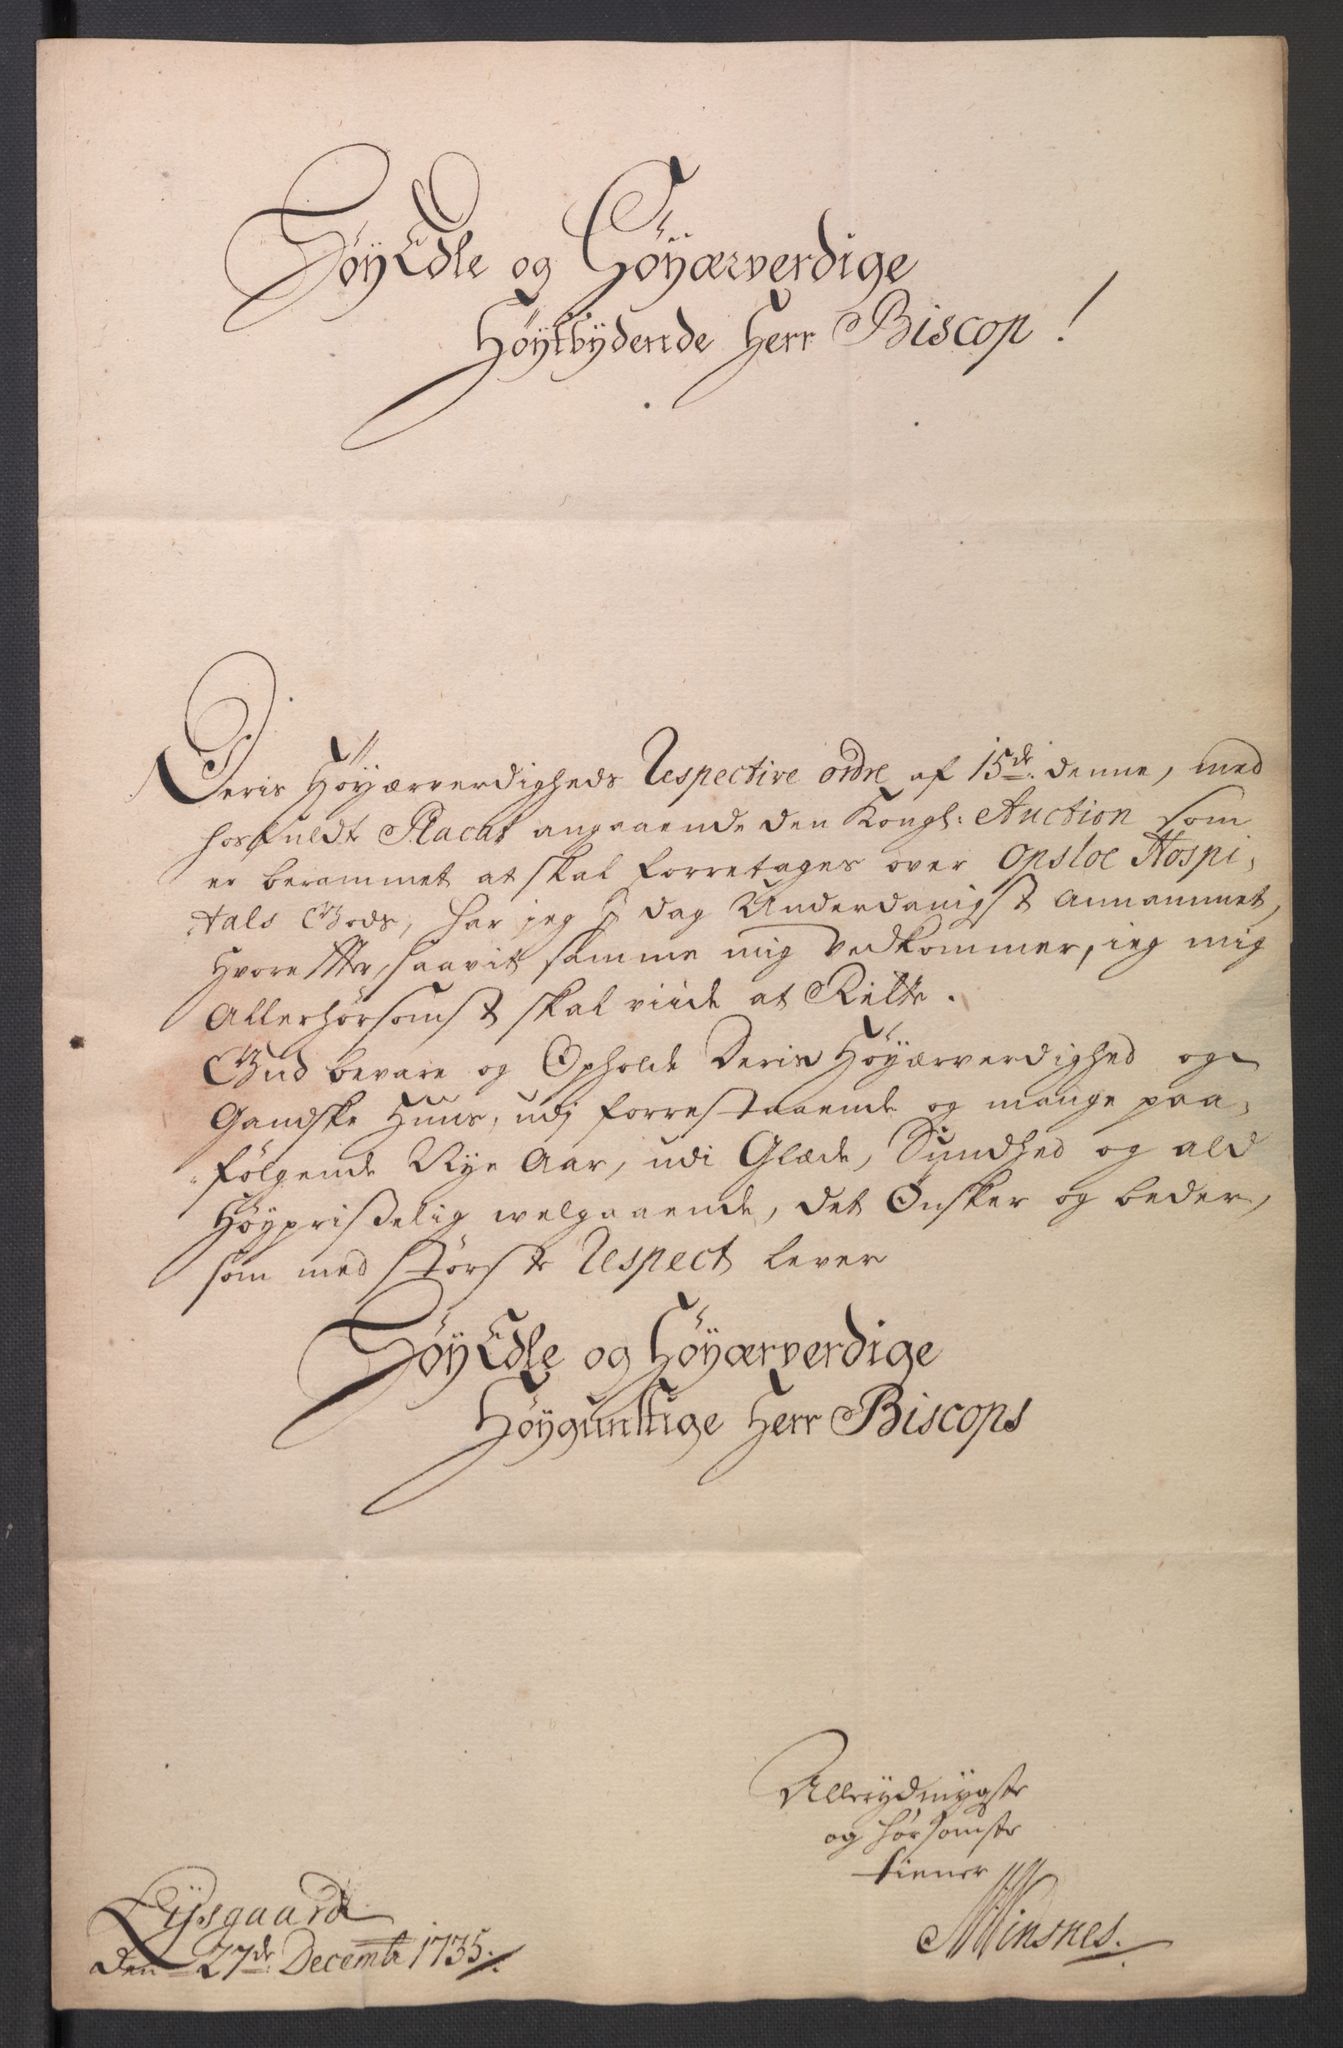 HøyEdle og Høyærverdige
Høytbydende Herr Biscop!
Deris Høyærværdigheds Respective ordre af 15de: denne, med
hosfuldt Placat angaaende den Kongl: Auction som
er berammet at skal forretages over Opsloe Hospi,
tals Gods, har jeg i dag Underdanigst annammet,
hvorefter, saavit samme mig vedkommer, ieg mig
Allerhørsomst skal viide at Rette.
Gud bevare og Opholde Deris Høyærværdighed og
Gandske Huus, udj forrestaaende og mange paa,
følgende Nye Aar, udi Glæde, Sundhed og ald
Høyprisselig welgaaende, det Ønsker og beder,
som med største Respect lever
HøyEdle og Høyærverdige
Høygunstige Herr Biscops
Allerydmygste
og hørsomste
tiener
Lysgaard
den 27de: Decembr 1735.